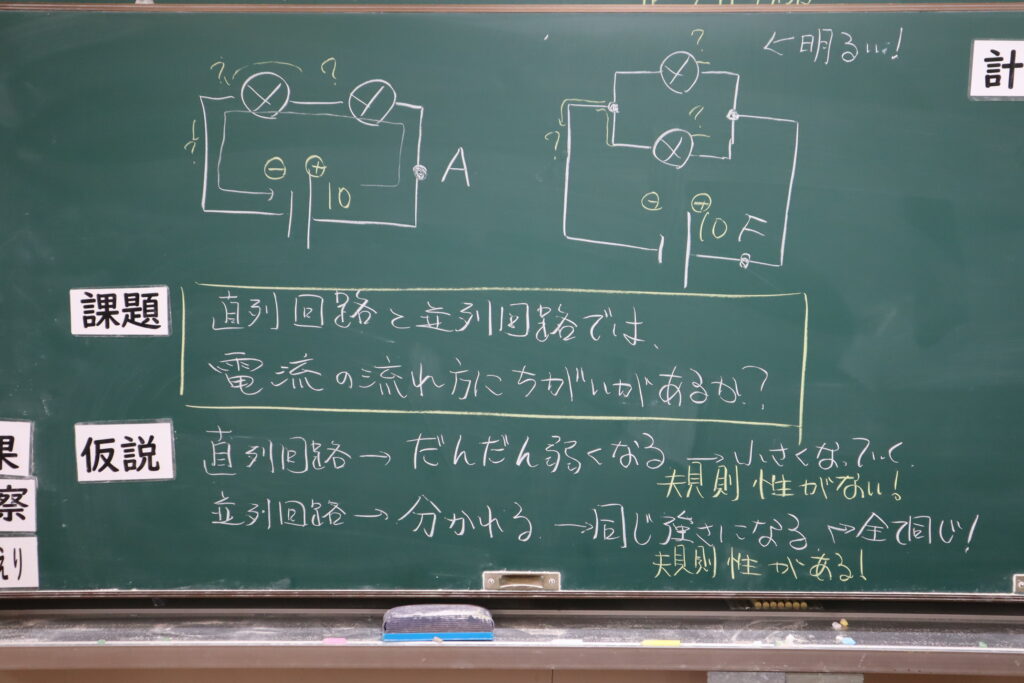 ←明るい!
計
? ? ?
⊖ ⊕ 10 A
? ? ?
⊖ ⊕ 10 F
課題
直列回路と並列回路では、
電流の流れ方にちがいがあるか?
果
仮説
直列回路→だんだん弱くなる→小さくなっていく。
規則性がない!
察
並列回路→分かれる→同じ強さになる→全て同じ!
規則性がある!
えり